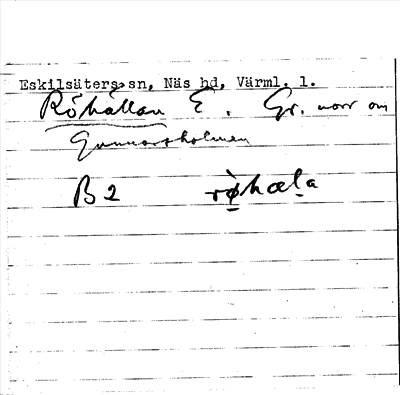 Eskilsäters sn, Näs hd, Värml. l.
Röhällan E. Gr. norr om
Gunnarsholmen
B2 rø̀hæla